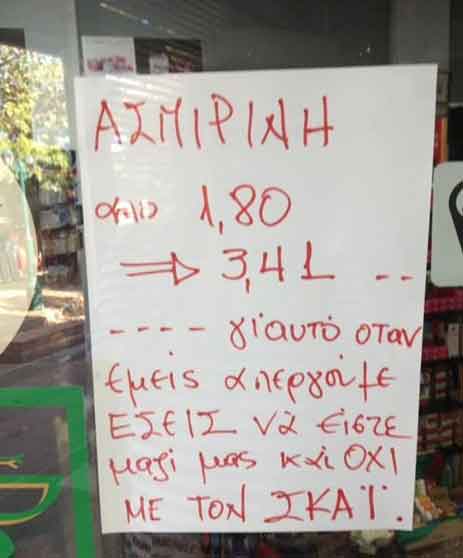 ΑΣΠΙΡΙΝΗ
από 1,80
⇒ 3,41 ..
---- γι'αυτό οταν
έμεις απεργούμε
ΕΣΕΙΣ νά είστε
μαζί μας και ΟΧΙ
ΜΕ ΤΟΝ ΣΚΑΪ.